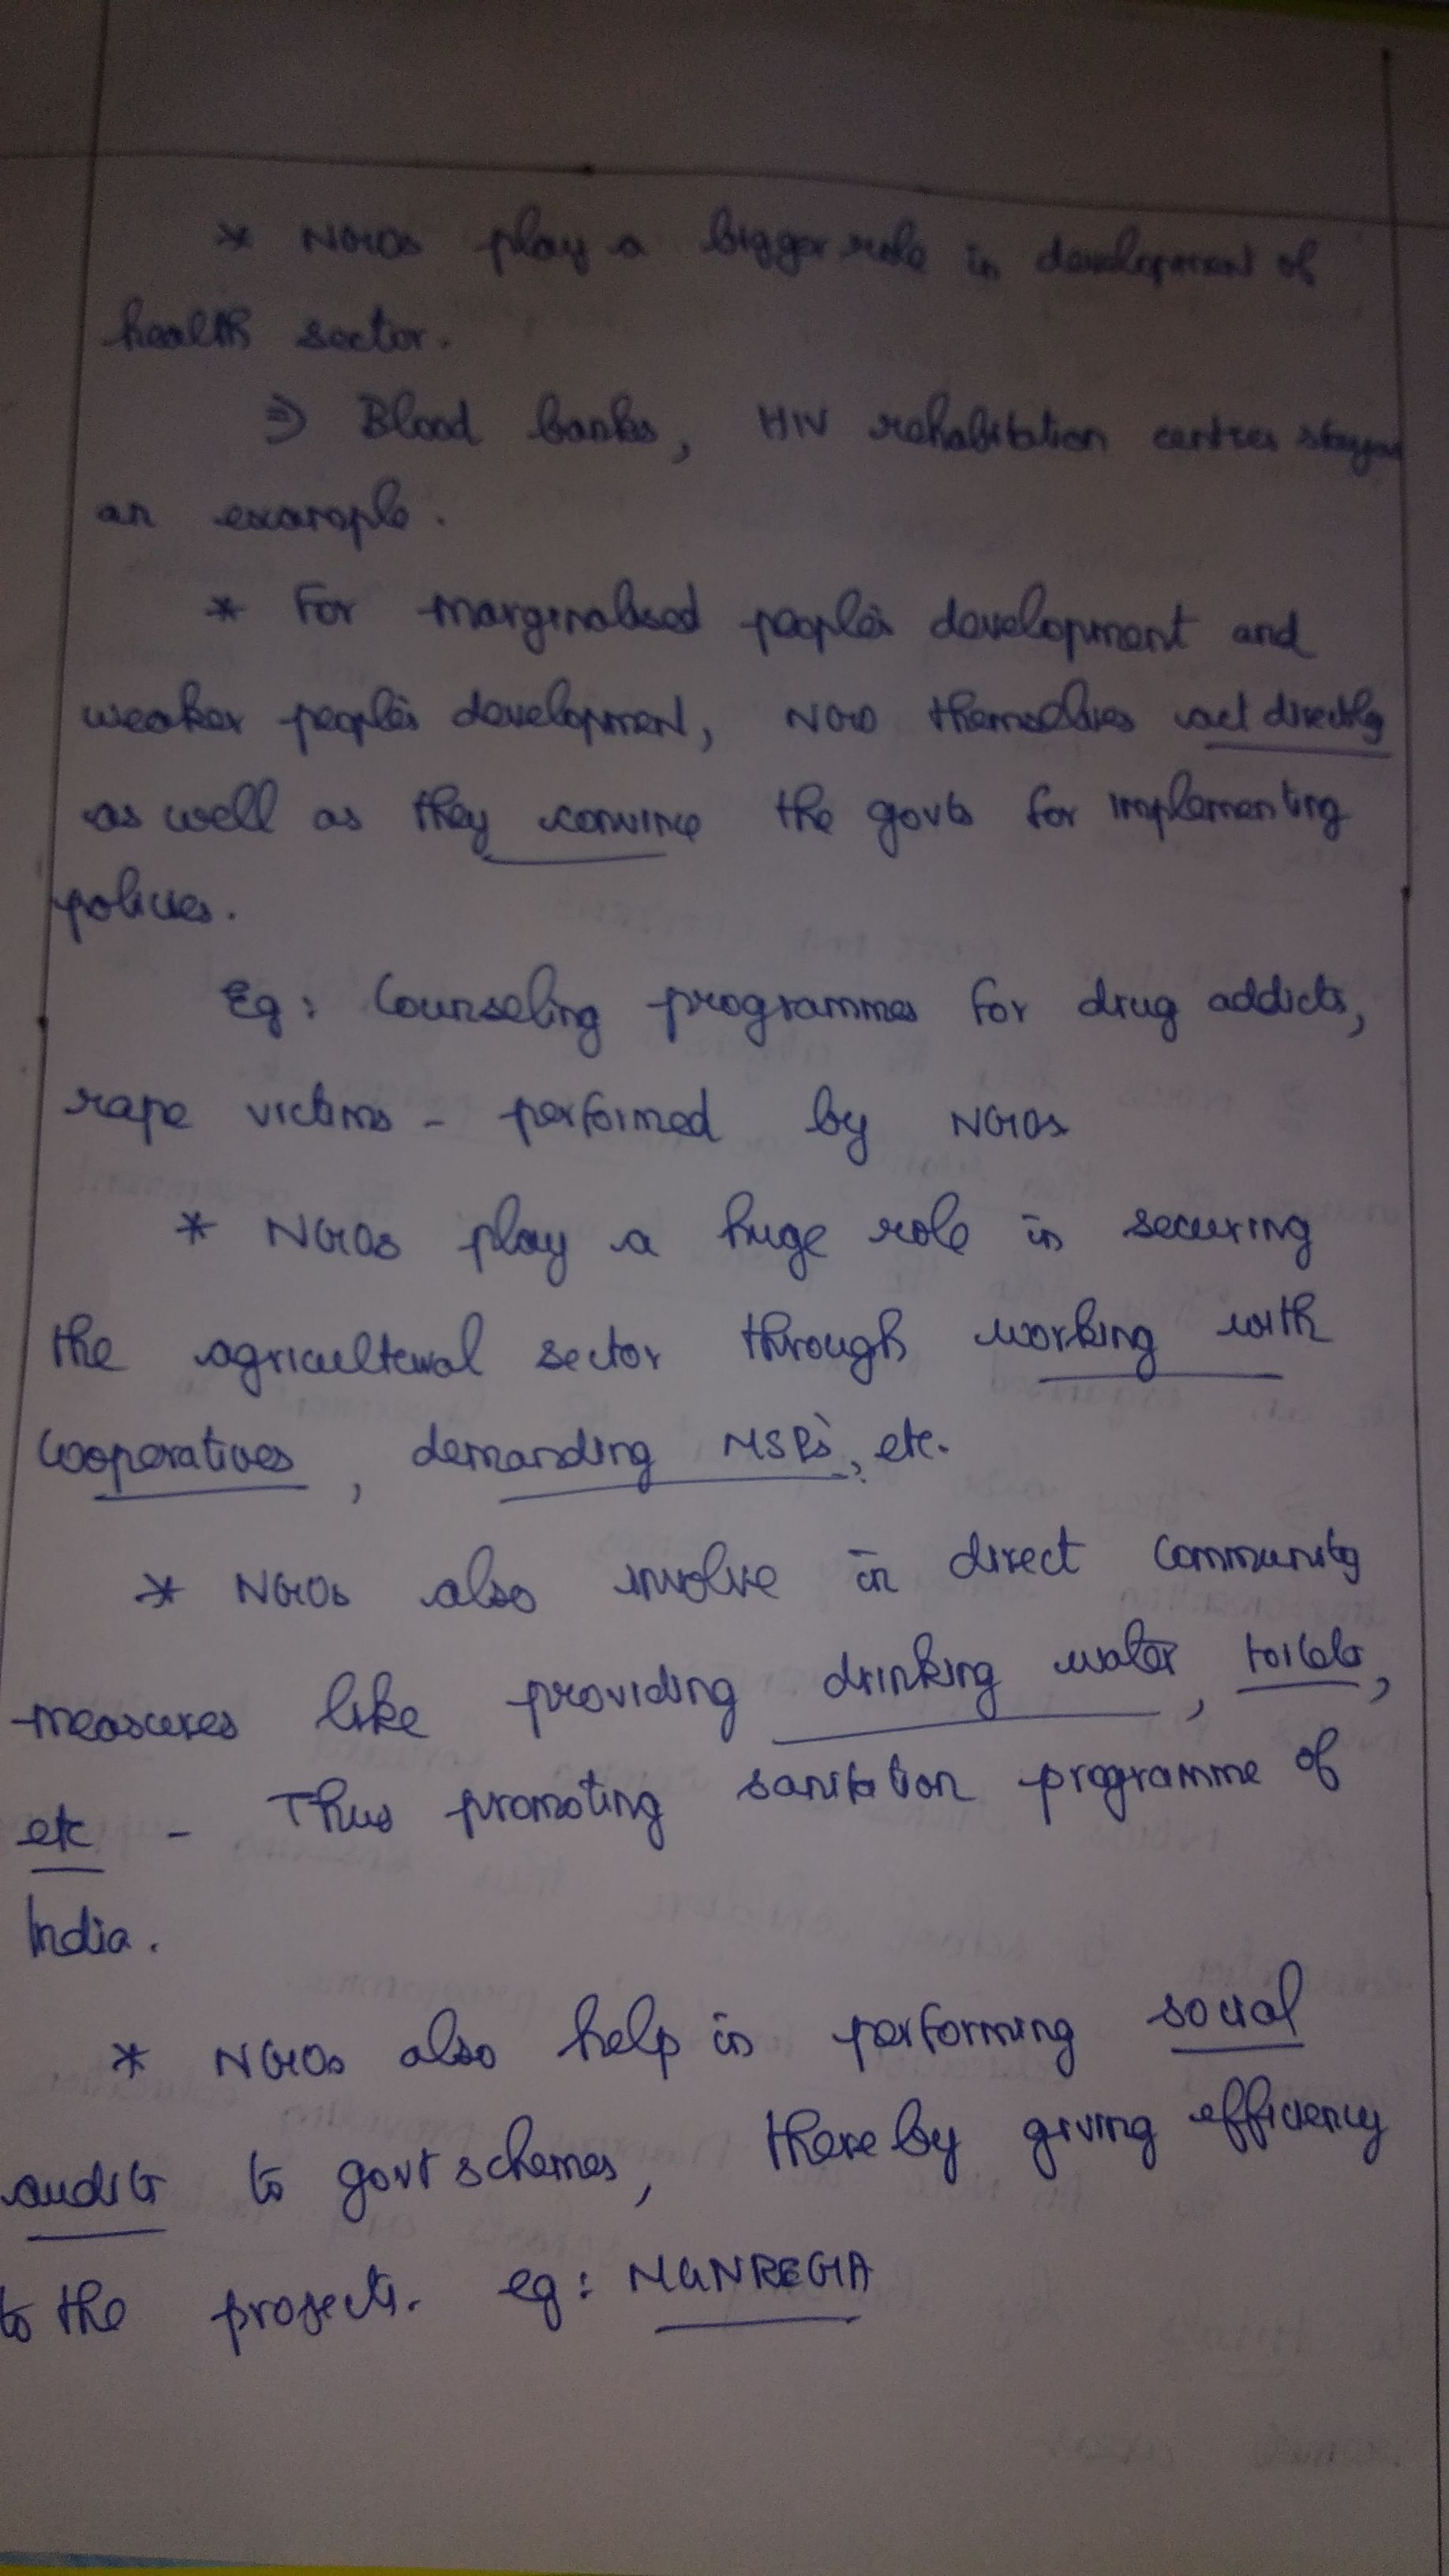 * NGOs play a bigger role in development of
health sector.
⇒ Blood banks, HIV rehabilitation centres
an example.
* For marginalised people's development and
weaker people's development, NGO themselves act directly
as well as they convince the govts for implementing
policies.
Eg: Counseling programmes for drug addicts,
rape victims - performed by NGOs
* NGOs play a huge role in securing
the agricultural sector through working with
cooperatives, demanding MSPs, etc.
* NGOs also involve in direct community
measures like providing drinking water, toilets,
etc - Thus promoting sanitation programme of
India.
* NGOs also help in performing social
audits to govt schemes, thereby giving efficiency
to the projects. eg: MGNREGA